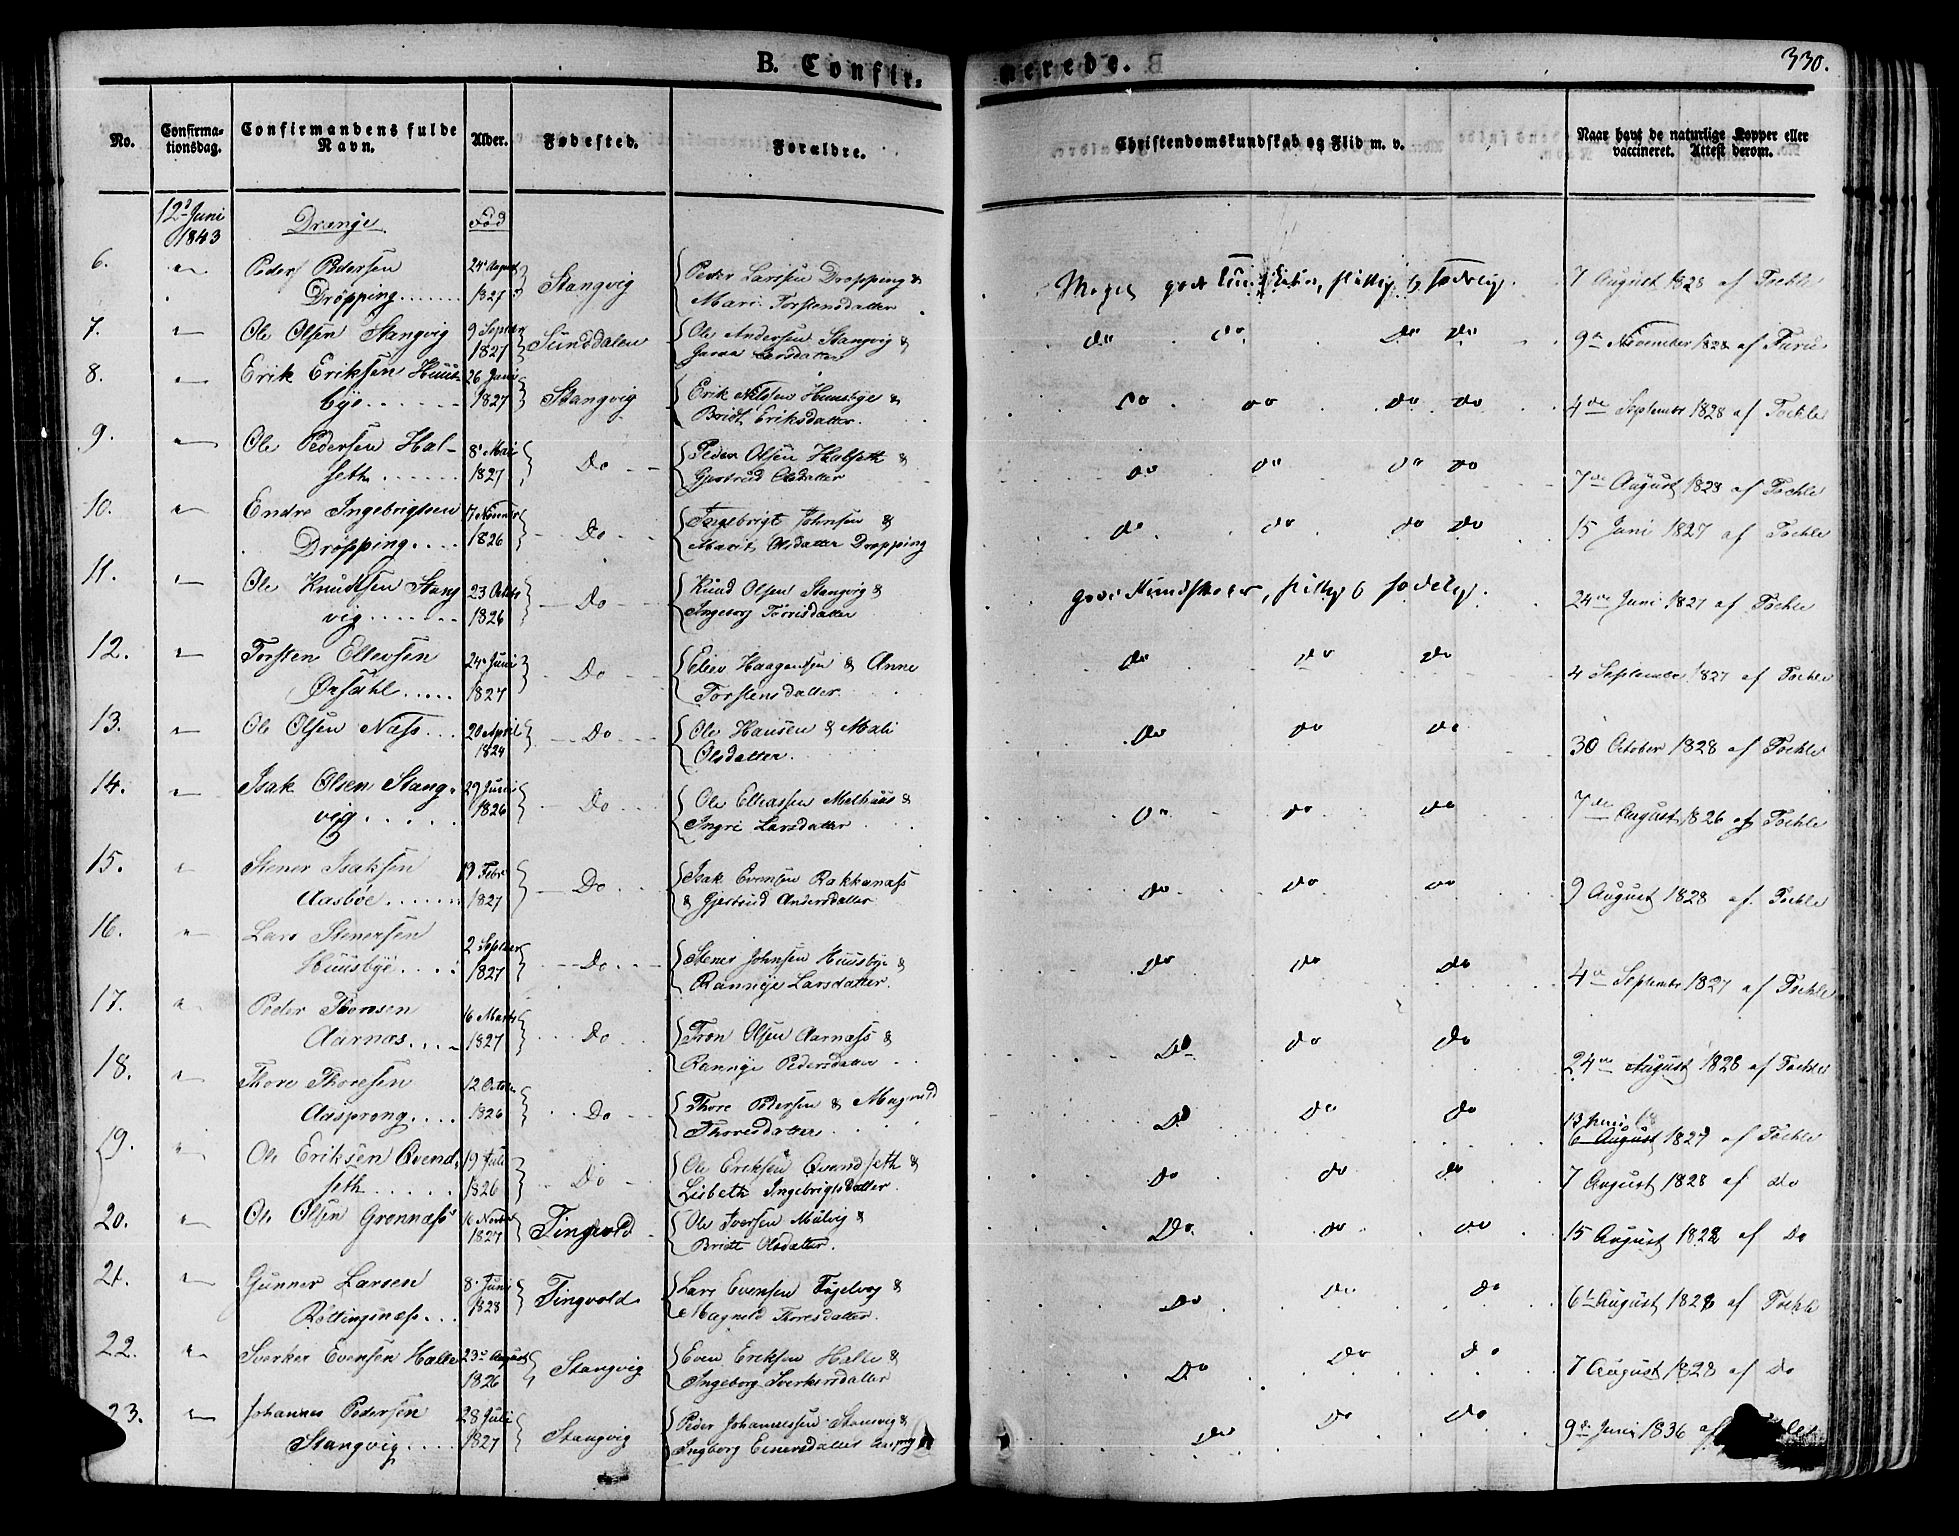 B. Confir-
merede.
330.
No.
Confirma-
tionsdag.
Confirmandens fulde
Navn.
Alder.
Fødested.
Forældre.
Christendomskundskab og Flid m. v.
Naar havt de naturlige Kopper eller
vaccineret. Attest derom.
12 Juni
1843
Drenge
Fød
6. " Peder Pedersen
Drøpping
24 August
1827
Stangvig
Peder Larssen Drøpping &
Mari Torstensdatter
Meget gode Kundskaber, flittig & sædelig.
7 August 1828 af Tochle
7. " Ole Olsen Stangvig
9 Septbr
1827
Sunddalen
Ole Andersen Stangvig &
Larsdatter
do do do do
9de November 1828 af
8. " Erik Eriksen Huus-
bye
26 Juni
1827
Stangvig
Erik Nilsen Huusbye &
Bridt Eriksdatter.
Do do do do
4de September 1828 af Tochle
9. " Ole Pedersen Hal-
seth
8 Mai
1827
Do
Peder Olsen Halseth &
Gjertrud Olsdatter
do do do do
7de August 1828 af Tochle
10. " Endre Ingebrigtsen
Drøpping
17 Novembr
1826
Do
Ingebrigt Johnsen &
Marit Olsdatter Drøpping
do do do do
15 Juni 1827 af Tochle
11. " Ole Knudtsen Stang
vig
23 Octobr
1826
Do
Knud Olsen Stangvig &
Ingeborg Torrisdatter
gode Kundskaber, flittig & sædelig.
24de Juni 1827 af Tochle
12. " Torsten Ellevsen
Ørsahl
24 Juni
1827
Do
Elev Haagensen & Anne
Torstensdatter
do do do
4 September 1827 af Tochle
13. " Ole Olsen Næss
20 April
1824
Do
Ole Hansen & Mali
Olsdatter
do do do
30 October 1828 af Tochle
14. " Isak Olsen Stang-
vig
29 Juni
1826
Do
Ole Eliassen Melhuus &
Ingri Larsdatter
Do do do
7de August 1826 af Tochle
15. " Stener Isaksen
Aasbøe
19 Febr
1827
Do
Isak Evensen Rakkanæss
& Gjertrud Andersdatter
do do do
9 August 1828 af Tochle
16. " Lars Stenersen
Huusbye
2 Septber
1827
Do
Stener Johnsen Huusbye &
Rannige Larsdatter
do do do
4de September 1827 af Tochle
17. " Peder Thoresen
Aarnæs
16 Marts
1827
Do
Tron Olsen Aarnæss &
Rannige Pedersdatter
Do do do
24de August 1828 af Tochle
18. " Thore Thoresen
Aasprong
12 Octobr
1826
Do
Thore Pedersen & Magnild
Thoresdatter
Do do do
13 Juni
6 August 1827 af Tochle
19. " Ole Eriksen Qvend-
seth
19 Juli
1826
Do
Ole Eriksen Qvendseth &
Lisbeth Ingebrigtsdatter
Do do do
7 August 1828 af do
20. " Ole Olsen Grønnæss
16 Novbr
1827
Tingvold
Ole Iversen Mulvig &
Britt Olsdatter.
Do do do
15 August 1828 af Do
21. " Gunner Larsen
Røttingsnæss
8 Juni
1828
Tingvold
Lars Evensen &
Magnild Thoresdatter.
Do do do
6te August 1828 af Tochle
22. " Sverker Evensen Halle
23 August
1826
Stangvig
Even Eriksen Halle &
Ingeborg Sverkersdatter
Do do do
7 August 1828 af Do
23. " Johannes Pedersen
Stangvig
28 Juli
1827
Stangvig
Peder Johannessen Stangvig &
Ingborg Einersdatter
Do do do
9de Juni 1836 af